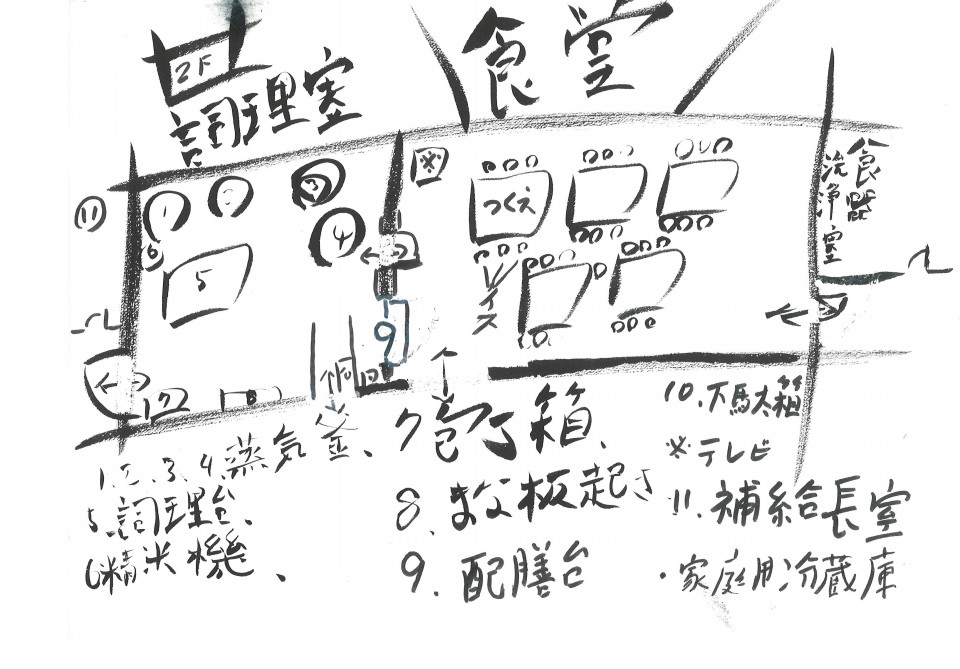 2F
調理室
食堂
食器
洗浄室
※
つくえ
イス
⑪
1
2
3
4
5
6
7
8
9
10
1.2.3.4.蒸気釜、
5.調理台、
6精米機、
7包丁箱、
8.まな板起き
9.配膳台
10.下駄箱
※テレビ
11.補給長室
・家庭用冷蔵庫